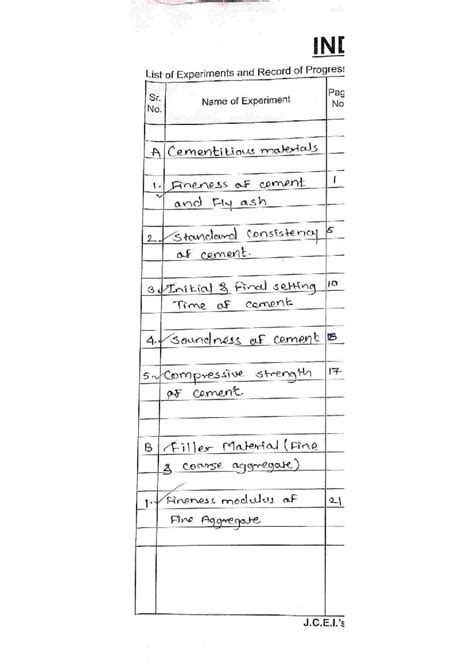 IND
List of Experiments and Record of Progress
Sr. No. Name of Experiment Pag No
A Cementitious materials
1. Fineness of cement 1
and Fly ash
2. Standard Consistency 5
of cement.
3. Initial & Final setting 10
Time of cement
4. Soundness of cement
5. Compressive strength 17
of cement.
B Filler Material (Fine
& coarse aggregate)
1. Fineness modulus of 21
Fine Aggregate
J.C.E.I.'s